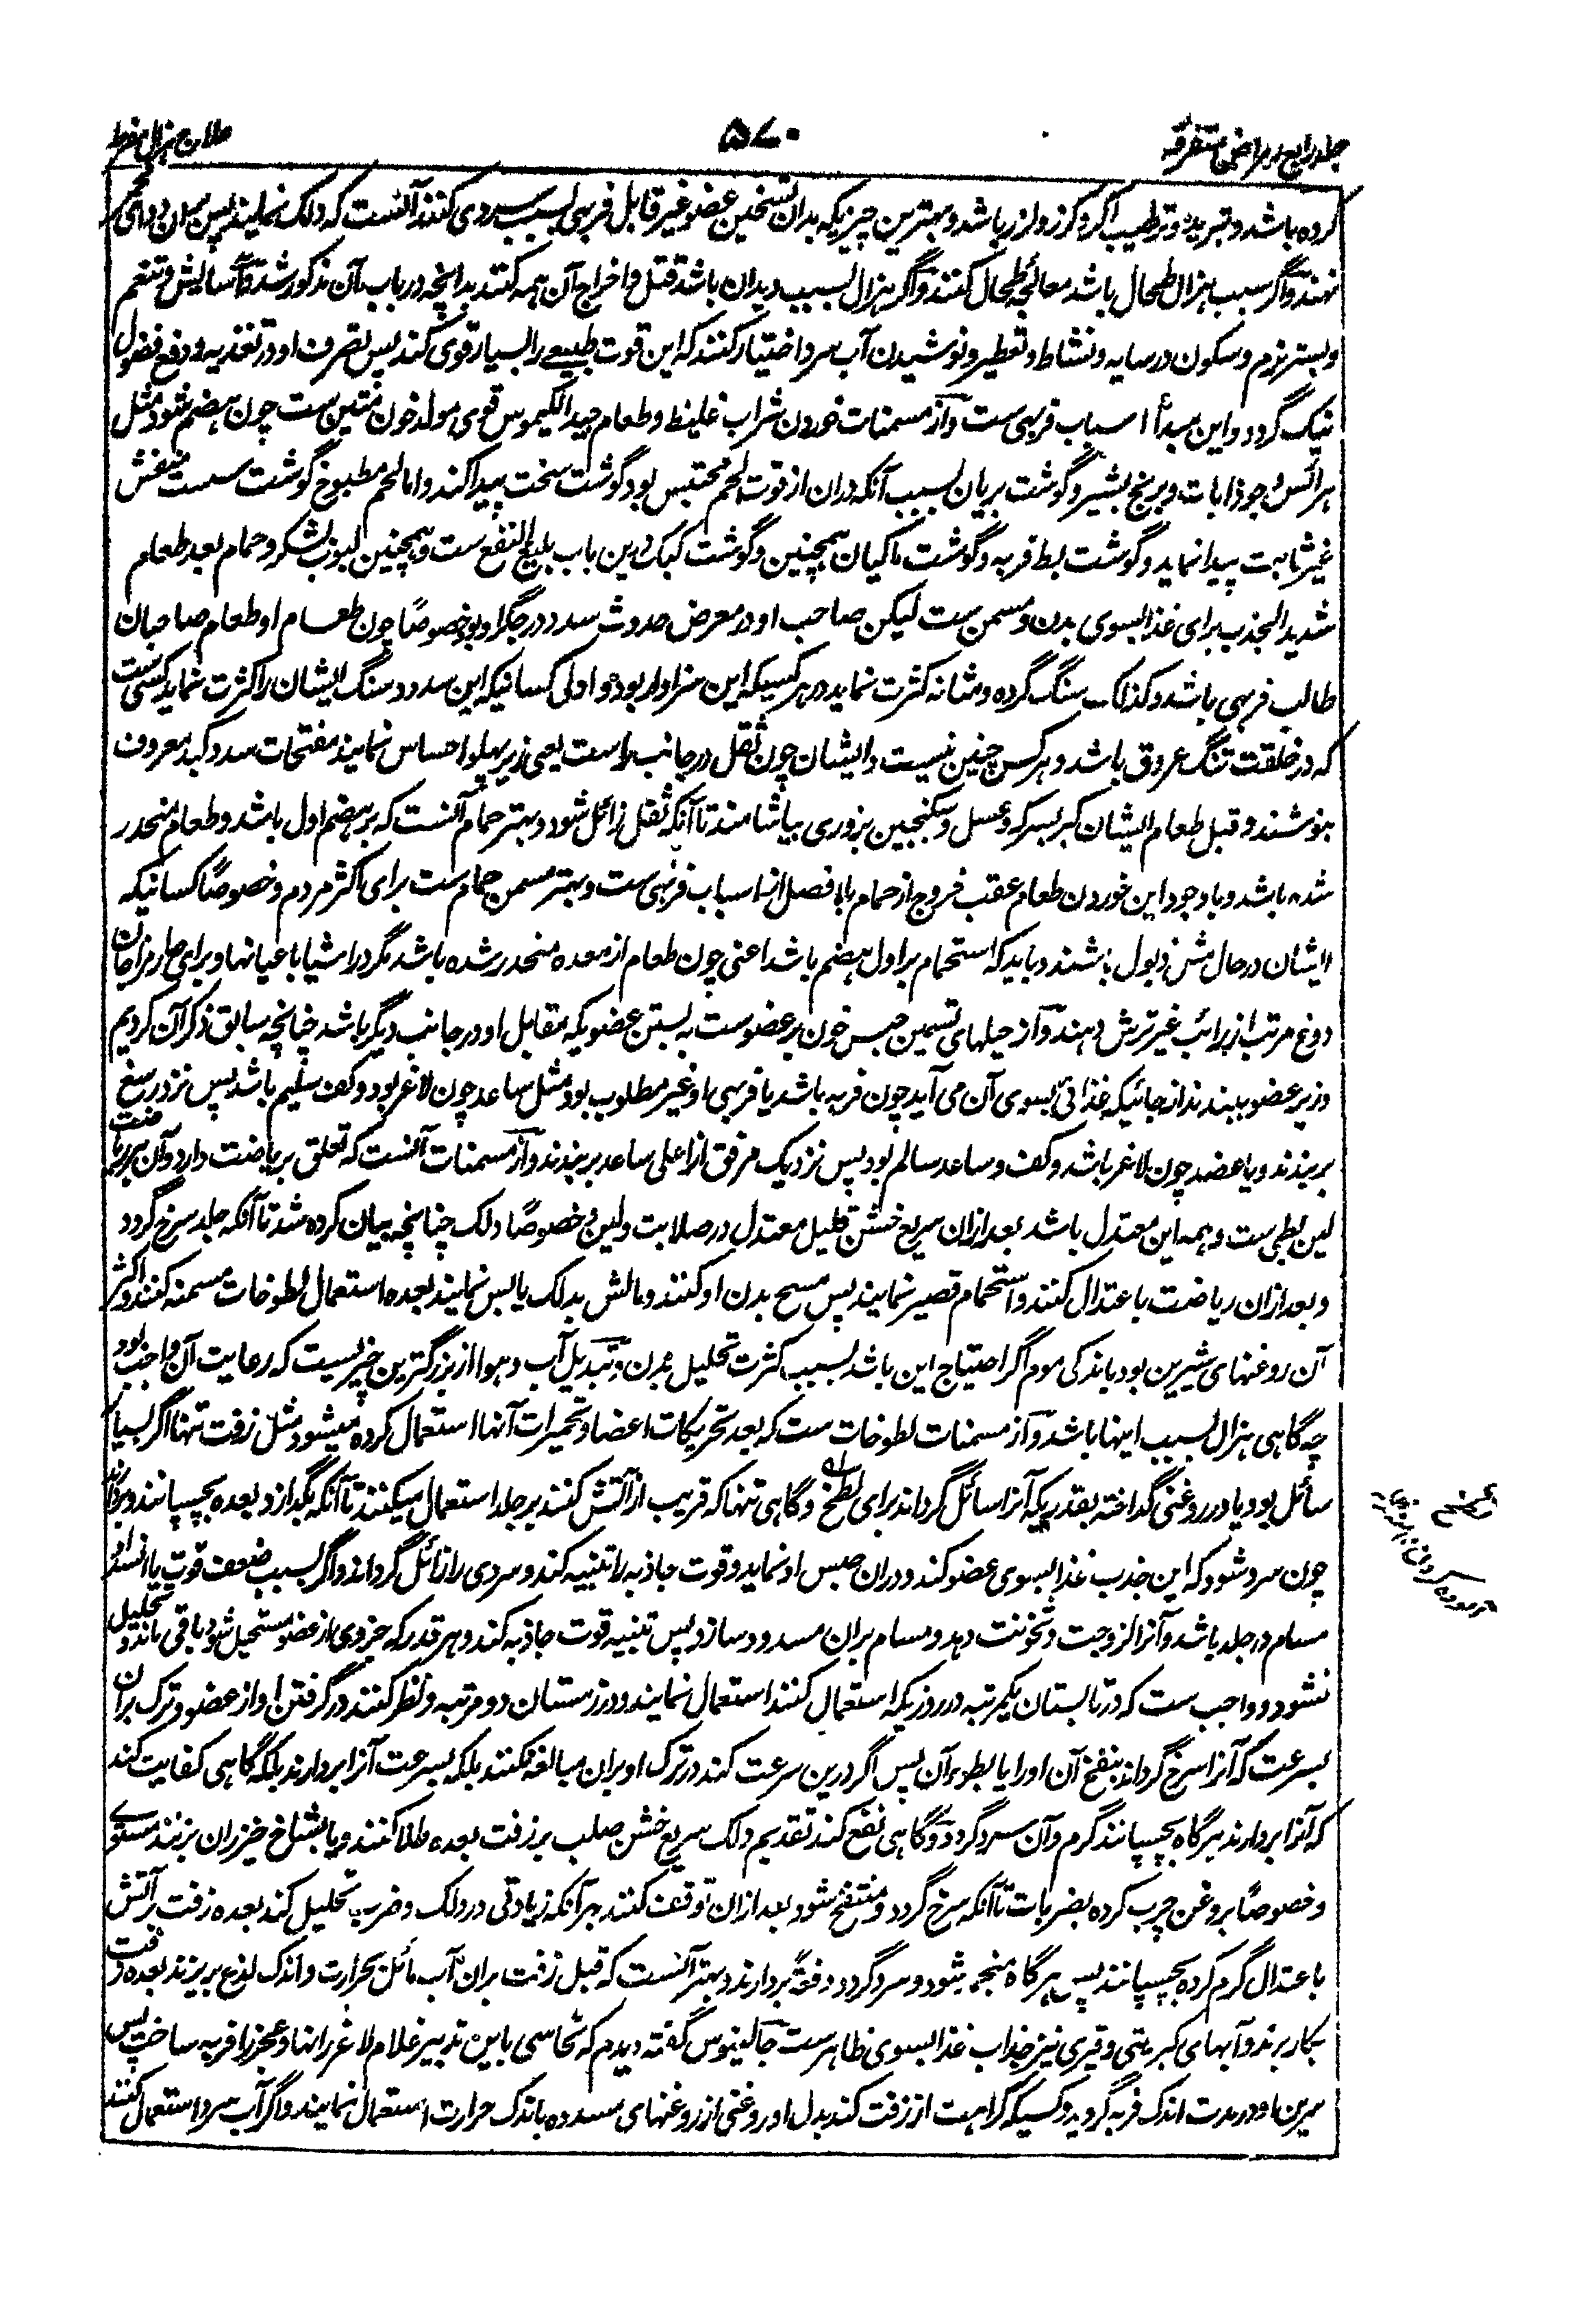 جلد رابع در امراض متفرقه
۵۷۰
علاج هزال مفرط
کرده باشد و تبرید و ترطیب اگر و کرز و لزر باشد و بهترین چیزیکه بدان تسخین عضو غیر قابل فربهی بسبب سردی کنند آنست که دلک نمایند پس بران دوای محمر
نهند و اگر سبب هزال طحال باشد معالجه طحال کنند و اگر هزال بسبب دیدان باشد قتل و اخراج آن همه کنند بدانچه در باب آن مذکور شد و آسایش و تنعم
و بستر نرم و سکون در سایه و نشاط و تعطیر و نوشیدن آب سرد اختیار کنند که این قوت طبیعے را بسیار قوی کند پس تصرف او در تغذیه و دفع فضول
نیک گردد و این مبدأ اسباب فربهی ست و از مسمنات خوردن شراب غلیظ و طعام جید الکیموس قوی مولد خون متین ست چون هضم شود مثل
هرائس و جوذابات و برنج بشیر و گوشت بریان بسبب آنکه دران از قوت لحم محتبس بود گوشت سخت پیدا کند و اما لحم مطبوخ گوشت سست منفش
غیر ثابت پیدا نماید و گوشت بط فربه و گوشت ماکیان همچنین و گوشت کبک درین باب بلیغ النفع ست و همچنین لبوب بشکر و حمام بعد طعام
شدید الجذب برای غذا بسوی بدن و مسمن ست لیکن صاحب او در معرض حدوث سدد در جگر او بود خصوصاً چون طعام او طعام صاحبان
طالب فربهی باشد و کذلک سنگ گرده و مثانه کثرت نماید در هر کسیکه این سزاوار بود و اولی کسانیکه این سدد و سنگ ایشان را کثرت نماید کسی ست
که در خلقت تنگ عروق باشد و هر کس چنین نیست و ایشان چون ثقل در جانب راست یعنی زیر پهلو احساس نمایند مفتحات سدد کبد معروف
بنوشند و قبل طعام ایشان کبر بسرکه و عسل و سکنجبین بزوری بیاشامند تا آنکه ثقل زائل شود و بهتر حمام آنست که بر هضم اول باشد و طعام منحدر
شده باشد و باوجود این خوردن طعام عقب خروج از حمام بلا فصل از اسباب فربهی ست و بهتر مسمن حمام ست برای اکثر مردم و خصوصاً کسانیکه
ایشان در حال مثل ذبول باشند و باید که استحمام بر اول هضم باشد اعنی چون طعام از معده منحدر شده باشد مگر در اشیا باعیانها و برای حار مزاجان
دوغ مرتب از رائب غیر ترش دهند و از حیلهای تسمین حبس خون بر عضوست به بستن عضویکه مقابل او در جانب دیگر باشد چنانچه سابق ذکر آن کردیم
و زیر عضو ببندند از جائیکه غذائی بسوی آن می آید چون فربه باشد یا فربهی او غیر مطلوب بود مثل ساعد چون لاغر بود و کف سلیم باشد پس نزد رسغ
بربندند و یا عضد چون لاغر باشد و کف و ساعد سالم بود پس نزدیک مرفق از اعلی ساعد بربندند و از مسمنات آنست که تعلق بریاضت دارد و آن هر ریاضت
لین بطی ست و همه این معتدل باشد بعد ازان سریع خشن قلیل معتدل در صلابت و لین و خصوصاً دلک چنانچه بیان کرده شد تا آنکه جلد سرخ گردد
و بعد ازان ریاضت باعتدال کنند و استحمام قصیر نمایند پس مسح بدن او کنند و مالش بدلک یابس نمایند بعده استعمال لطوخات مسمنه کنند و اکثر
آن روغنهای شیرین بود باندکی موم اگر احتیاج این باشد بسبب کثرت تحلیل بدن و تبدیل آب و هوا از بزرگترین چیزیست که رعایت آن واجب بود
چه گاهی هزال بسبب اینها باشد و از مسمنات لطوخات ست که بعد تحریکات اعضا و تحمیرات آنها استعمال کرده میشود مثل زفت تنها اگر بسیار
سائل بود یا در روغنی گداخته بقدریکه آنرا سائل گرداند برای لطخ و گاهی تنها که قریب از آتش کنند بر جلد استعمال میکنند تا آنکه بگدازد و بعده بچسپانند و بردارند
چون سرد شود که این جذب غذا بسوی عضو کند و دران حبس او نماید و قوت جاذبه را تنبیه کند و سردی را زائل گرداند و اگر بسبب ضعف قوت یا انسداد
مسام در جلد باشد و آنرا لزوجت و تخونت دهد و مسام بران مسدود سازد پس تنبیه قوت جاذبه کند و هر قدر که جزوی از عضو مستحیل شود باقی ماند و تحلیل
نشود و واجب ست که در تابستان یکمرتبه در روزیکه استعمال کنند استعمال نمایند و در زمستان دو مرتبه و نظر کنند در گرفتن او از عضو و ترک بران
بسرعت که آنرا سرخ گرداند بنفخ آن او را یا ببطوء آن پس اگر درین سرعت کند در ترک او بران مبالغه نکنند بلکه بسرعت آنرا بردارند بلکه گاهی کفایت کند
که آنرا بردارند هرگاه بچسپانند گرم و آن سرد گردد و گاهی نفع کند تقدیم دلک سریع خشن صلب بر زفت بعده طلا کنند و یا بشاخ خیزران بزنند مستوی
و خصوصاً بروغن چرب کرده بضربات تا آنکه سرخ گردد و منتفخ شود بعد ازان توقف کنند بر آنکه زیادتی در دلک و ضرب تحلیل کند بعده زفت بر آتش
باعتدال گرم کرده بچسپانند پس هرگاه منجمد شود و سرد گردد دفعةً بردارند و بهتر آنست که قبل زفت بران آب مائل بحرارت و اندک لذع بریزند بعده زفت
بکار برند و آبهای کبریتی و قیری نیز جذاب غذا بسوی ظاهرست جالینوس گفته دیدم که نخاسی باین تدبیر غلام لاغر رانها و عجز را فربه ساخت پس
سرین او در مدت اندک فربه گردید و کسیکه کراهت از زفت کند بدل او روغنی از روغنهای مسدده باندک حرارت استعمال نمایند و اگر آب سرد استعمال کنند